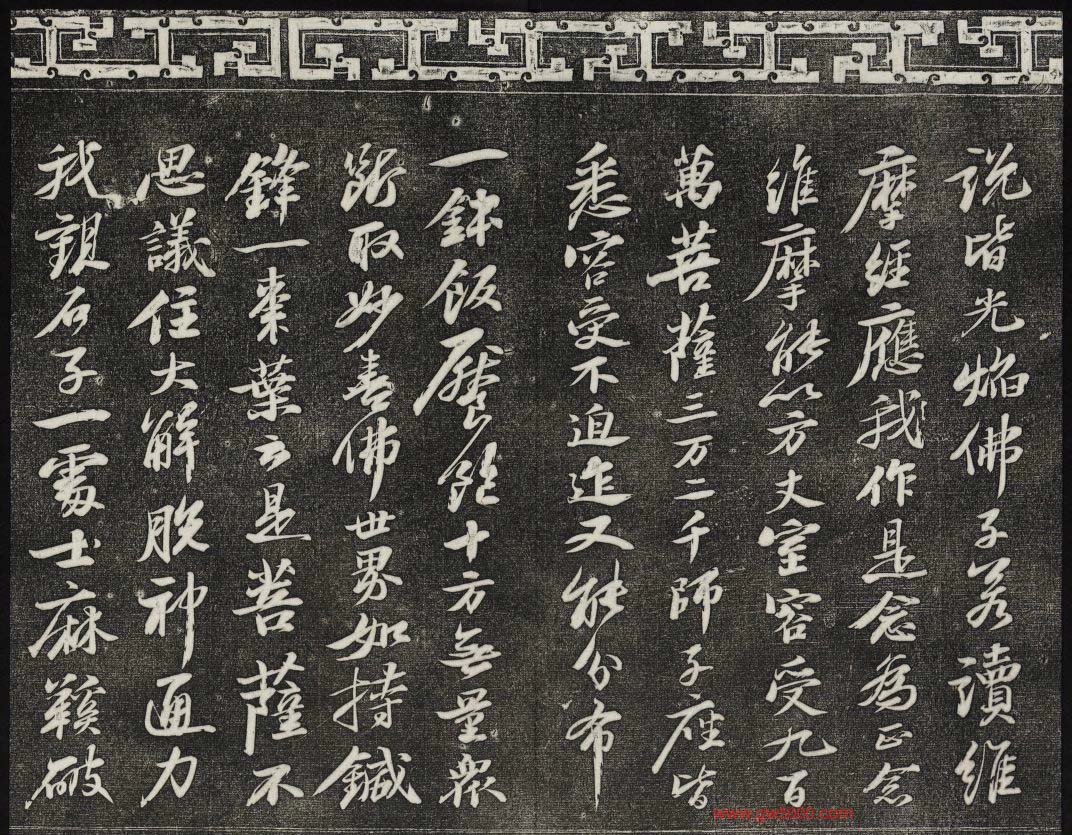 說皆光焰佛子若讀維
摩經應我作是念為正念
維摩能以方丈室容受九百
萬菩薩三万二千師子座皆
悉容受不迫迮又能分布
一鉢飯饜飽十方無量衆
斷取妙喜佛世界如持鍼
鋒一棗葉云是菩薩不
思議住大解脫神通力
我觀石子一處士麻鞵破